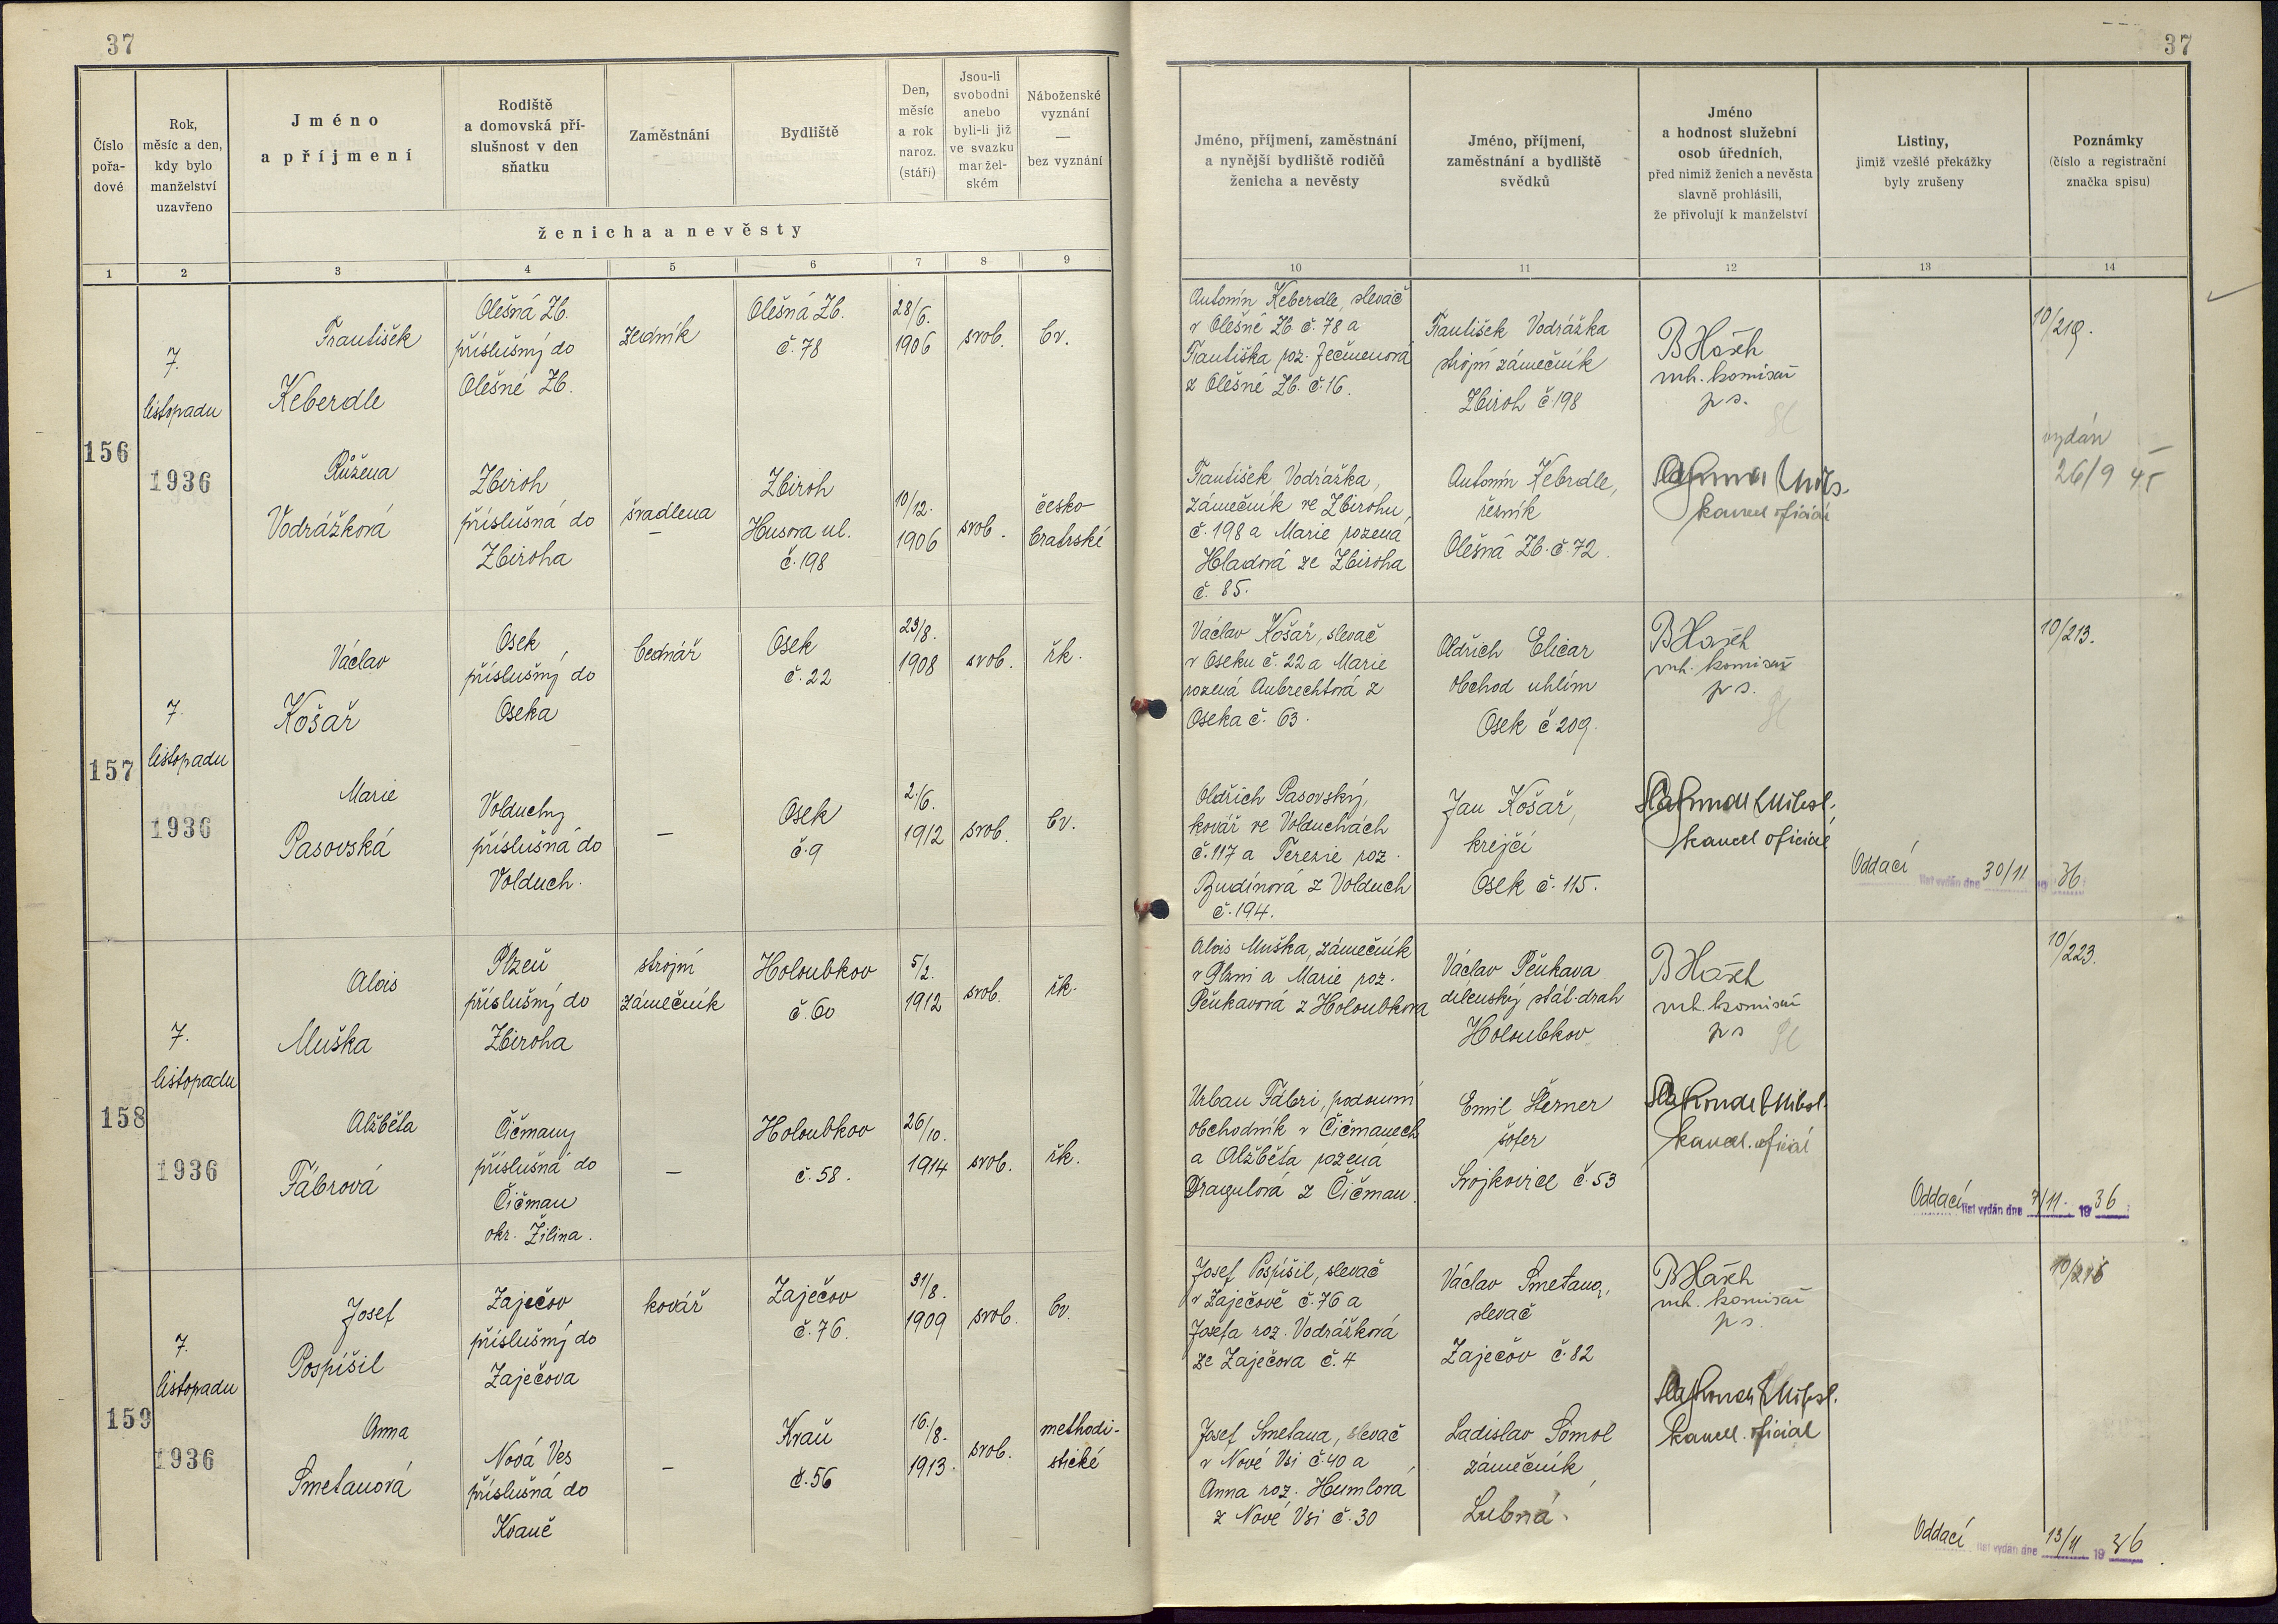 37
37
Číslo pořadové
Rok, měsíc a den, kdy bylo manželství uzavřeno
Jméno a příjmení
Rodiště a domovská příslušnost v den sňatku
Zaměstnání
Bydliště
Den, měsíc a rok naroz. (stáří)
Jsou-li svobodni anebo byli-li již ve svazku manželském
Náboženské vyznání — bez vyznání
ženicha a nevěsty
Jméno, příjmení, zaměstnání a nynější bydliště rodičů ženicha a nevěsty
Jméno, příjmení, zaměstnání a bydliště svědků
Jméno a hodnost služební osob úředních, před nimiž ženich a nevěsta slavně prohlásili, že přivolují k manželství
Listiny, jimiž vzešlé překážky byly zrušeny
Poznámky (číslo a registrační značka spisu)
1 2 3 4 5 6 7 8 9 10 11 12 13 14
156
7.
listopadu
1936
František
Keberdle
Olešná Zb.
příslušný do
Olešné Zb.
zedník
Olešná Zb.
č. 78
28/6.
1906
svob.
bv.
Antonín Keberdle, slevač
v Olešné Zb č. 78 a
Františka roz. Ječmenová
z Olešné Zb. č. 16.
František Vodrážka
strojní zámečník
Zbiroh č 198
B Hásek
vrh. komisař
p s.
10/219.
Růžena
Vodrážková
Zbiroh
příslušná do
Zbiroha
švadlena
—
Zbiroh
Husova ul.
č. 198
10/12.
1906
svob.
česko-
bratrské
František Vodrážka,
zámečník ve Zbirohu,
č. 198 a Marie rozená
Hladová ze Zbiroha
č. 85.
Antonín Keberdle,
řezník
Olešná Zb. č. 72.
kancel oficial
vydán
26/9 45
157
7.
listopadu
1936
Václav
Košař
Osek
příslušný do
Oseka
bednář
Osek
č. 22
29/8.
1908
svob.
řk.
Václav Košař, slevač
v Oseku č. 22 a Marie
rozená Aubrechtová z
Oseka č. 63.
Oldřich Elicar
obchod uhlím
Osek č 209.
B Hásek
vrh. komisař
p s.
10/213.
Marie
Pasovská
Volduchy
příslušná do
Volduch.
—
Osek
č. 9
2./6.
1912
svob.
bv.
Oldřich Pasovský,
kovář ve Volduchách
č. 117 a Terezie roz.
Budínová z Volduch
č. 194.
Jan Košař,
krejčí
Osek č. 115.
kancel oficial
Oddací list vydán dne 30/11 19 36
158
7.
listopadu
1936
Alois
Muška
Plzeň
příslušný do
Zbiroha
strojní
zámečník
Holoubkov
č. 60
5/2.
1912
svob.
řk.
Alois Muška, zámečník
v Plzni a Marie roz.
Pěnkavová z Holoubkova
Václav Pěnkava
dílenský stát. drah
Holoubkov
B Hásek
vrh. komisař
p s
10/223.
Alžběta
Fábrová
Čičmany
příslušná do
Čičman
okr. Žilina.
—
Holoubkov
č. 58.
26/10.
1914
svob.
řk.
Urban Fábri, podomní
obchodník v Čičmanech
a Alžběta rozená
Dragulová z Čičman.
Emil Šterner
šofer
Svojkovice č. 53
kancel. oficial
Oddací list vydán dne 7/11. 19 36
159
7.
listopadu
1936
Josef
Pospíšil
Zaječov
příslušný do
Zaječova
kovář
Zaječov
č. 76.
31/8.
1909
svob.
bv.
Josef Pospíšil, slevač
v Zaječově č. 76 a
Josefa roz. Vodrážková
ze Zaječova č. 4
Václav Smetana,
slevač
Zaječov č. 82
B Hásek
vrh. komisař
p s.
Anna
Smetanová
Nová Ves
příslušná do
Kvaně
—
Kvaň
č. 56
16./8.
1913.
svob.
methodi-
stické
Josef Smetana, slevač
v Nové Vsi č. 40 a
Anna roz. Humlová
z Nové Vsi č. 30
Ladislav Somol
zámečník,
Lubná.
kancel. oficial
Oddací list vydán dne 13/11 19 36.